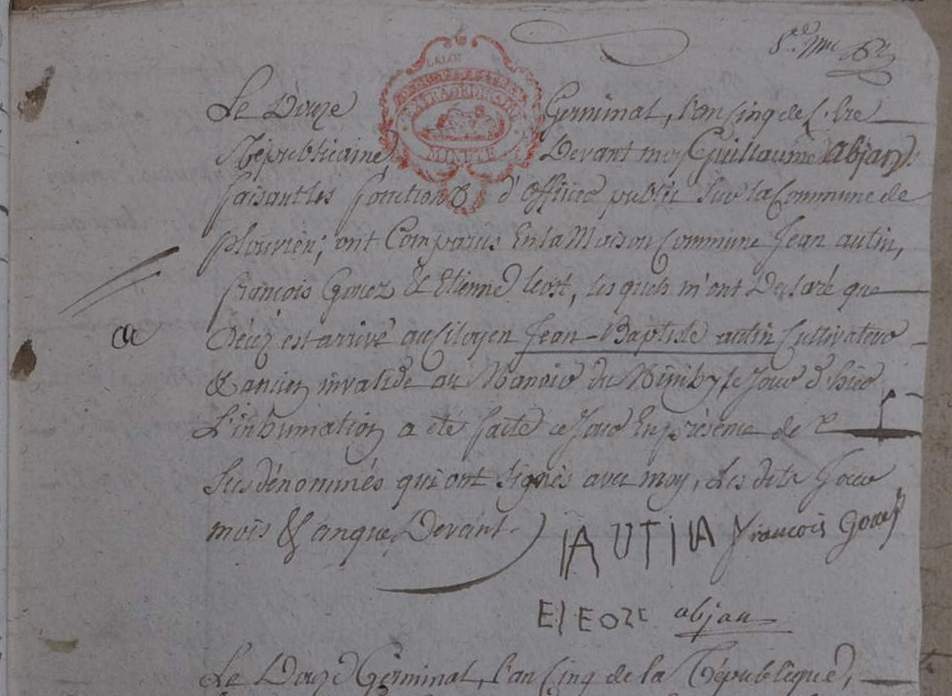 Le Douze Germinal, l'an Cinq de L. bre
Républicaine, Devant moy Guillaume abjan,
faisant les fonctions d'officier public Sur la Commune de
plourin, ont Comparus En la Maison Commune Jean autin,
françois Gouez & Etienne leost, les quels m'ont Declaré que
Décéz est arrivé au Citoyen Jean-Baptiste autin Cultivateur
& ancien invalide au Manoir du le Jour d'hier
L'inhumation a été faite ce Jour En présence de
Susdénommés qui ont Signés avec moy, Les dits Jour
mois & an que Devant.
IAUTIN françois Gouez
EL EOZE abjan
Le Douze Germinal, l'an Cinq de la République,
EXTRAORDINAIRE
MINUTE